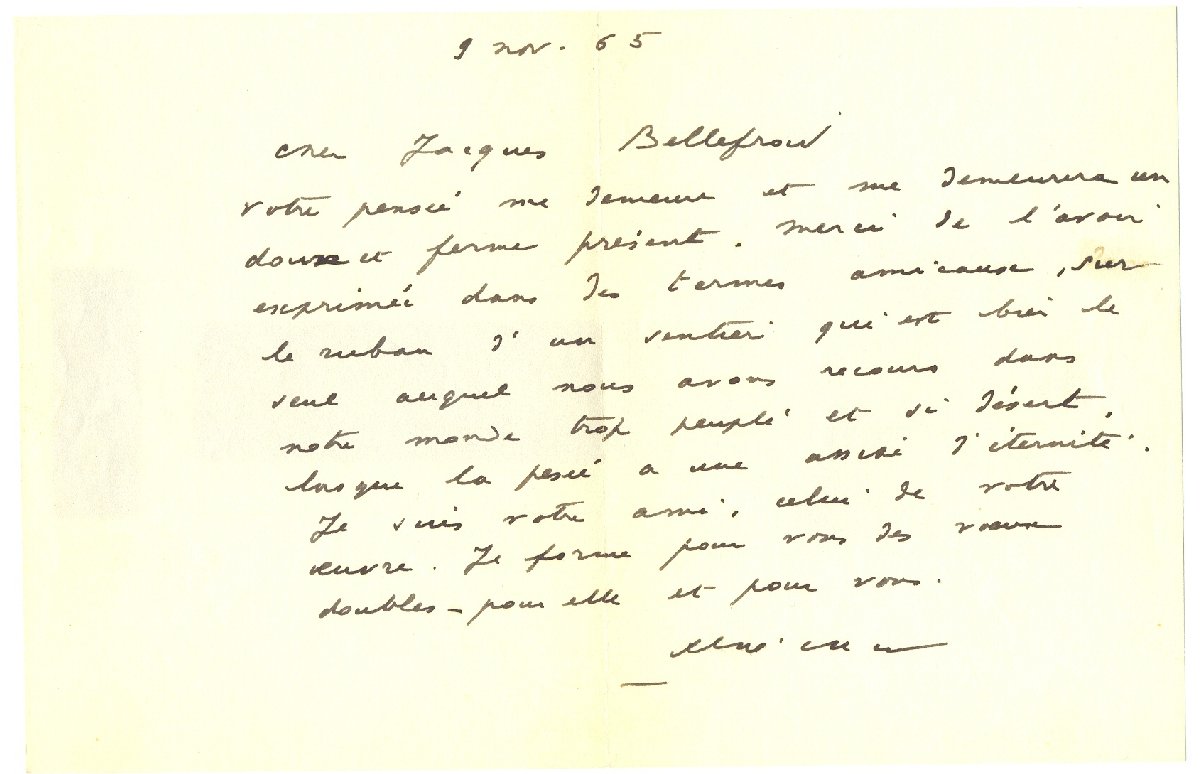 9 nov. 65
cher Jacques Bellefroid
votre pensée me demeure et me demeurera un
doux et ferme présent. Merci de l'avoir
exprimée dans des termes amicaux, sur
le ruban d'un sentier qui est bien le
seul auquel nous avons recours dans
notre monde trop peuplé et si désert,
lorsque la pensée a une assise d'éternité.
Je suis votre ami, celui de votre
œuvre. Je forme pour vous des vœux
doubles - pour elle et pour vous.